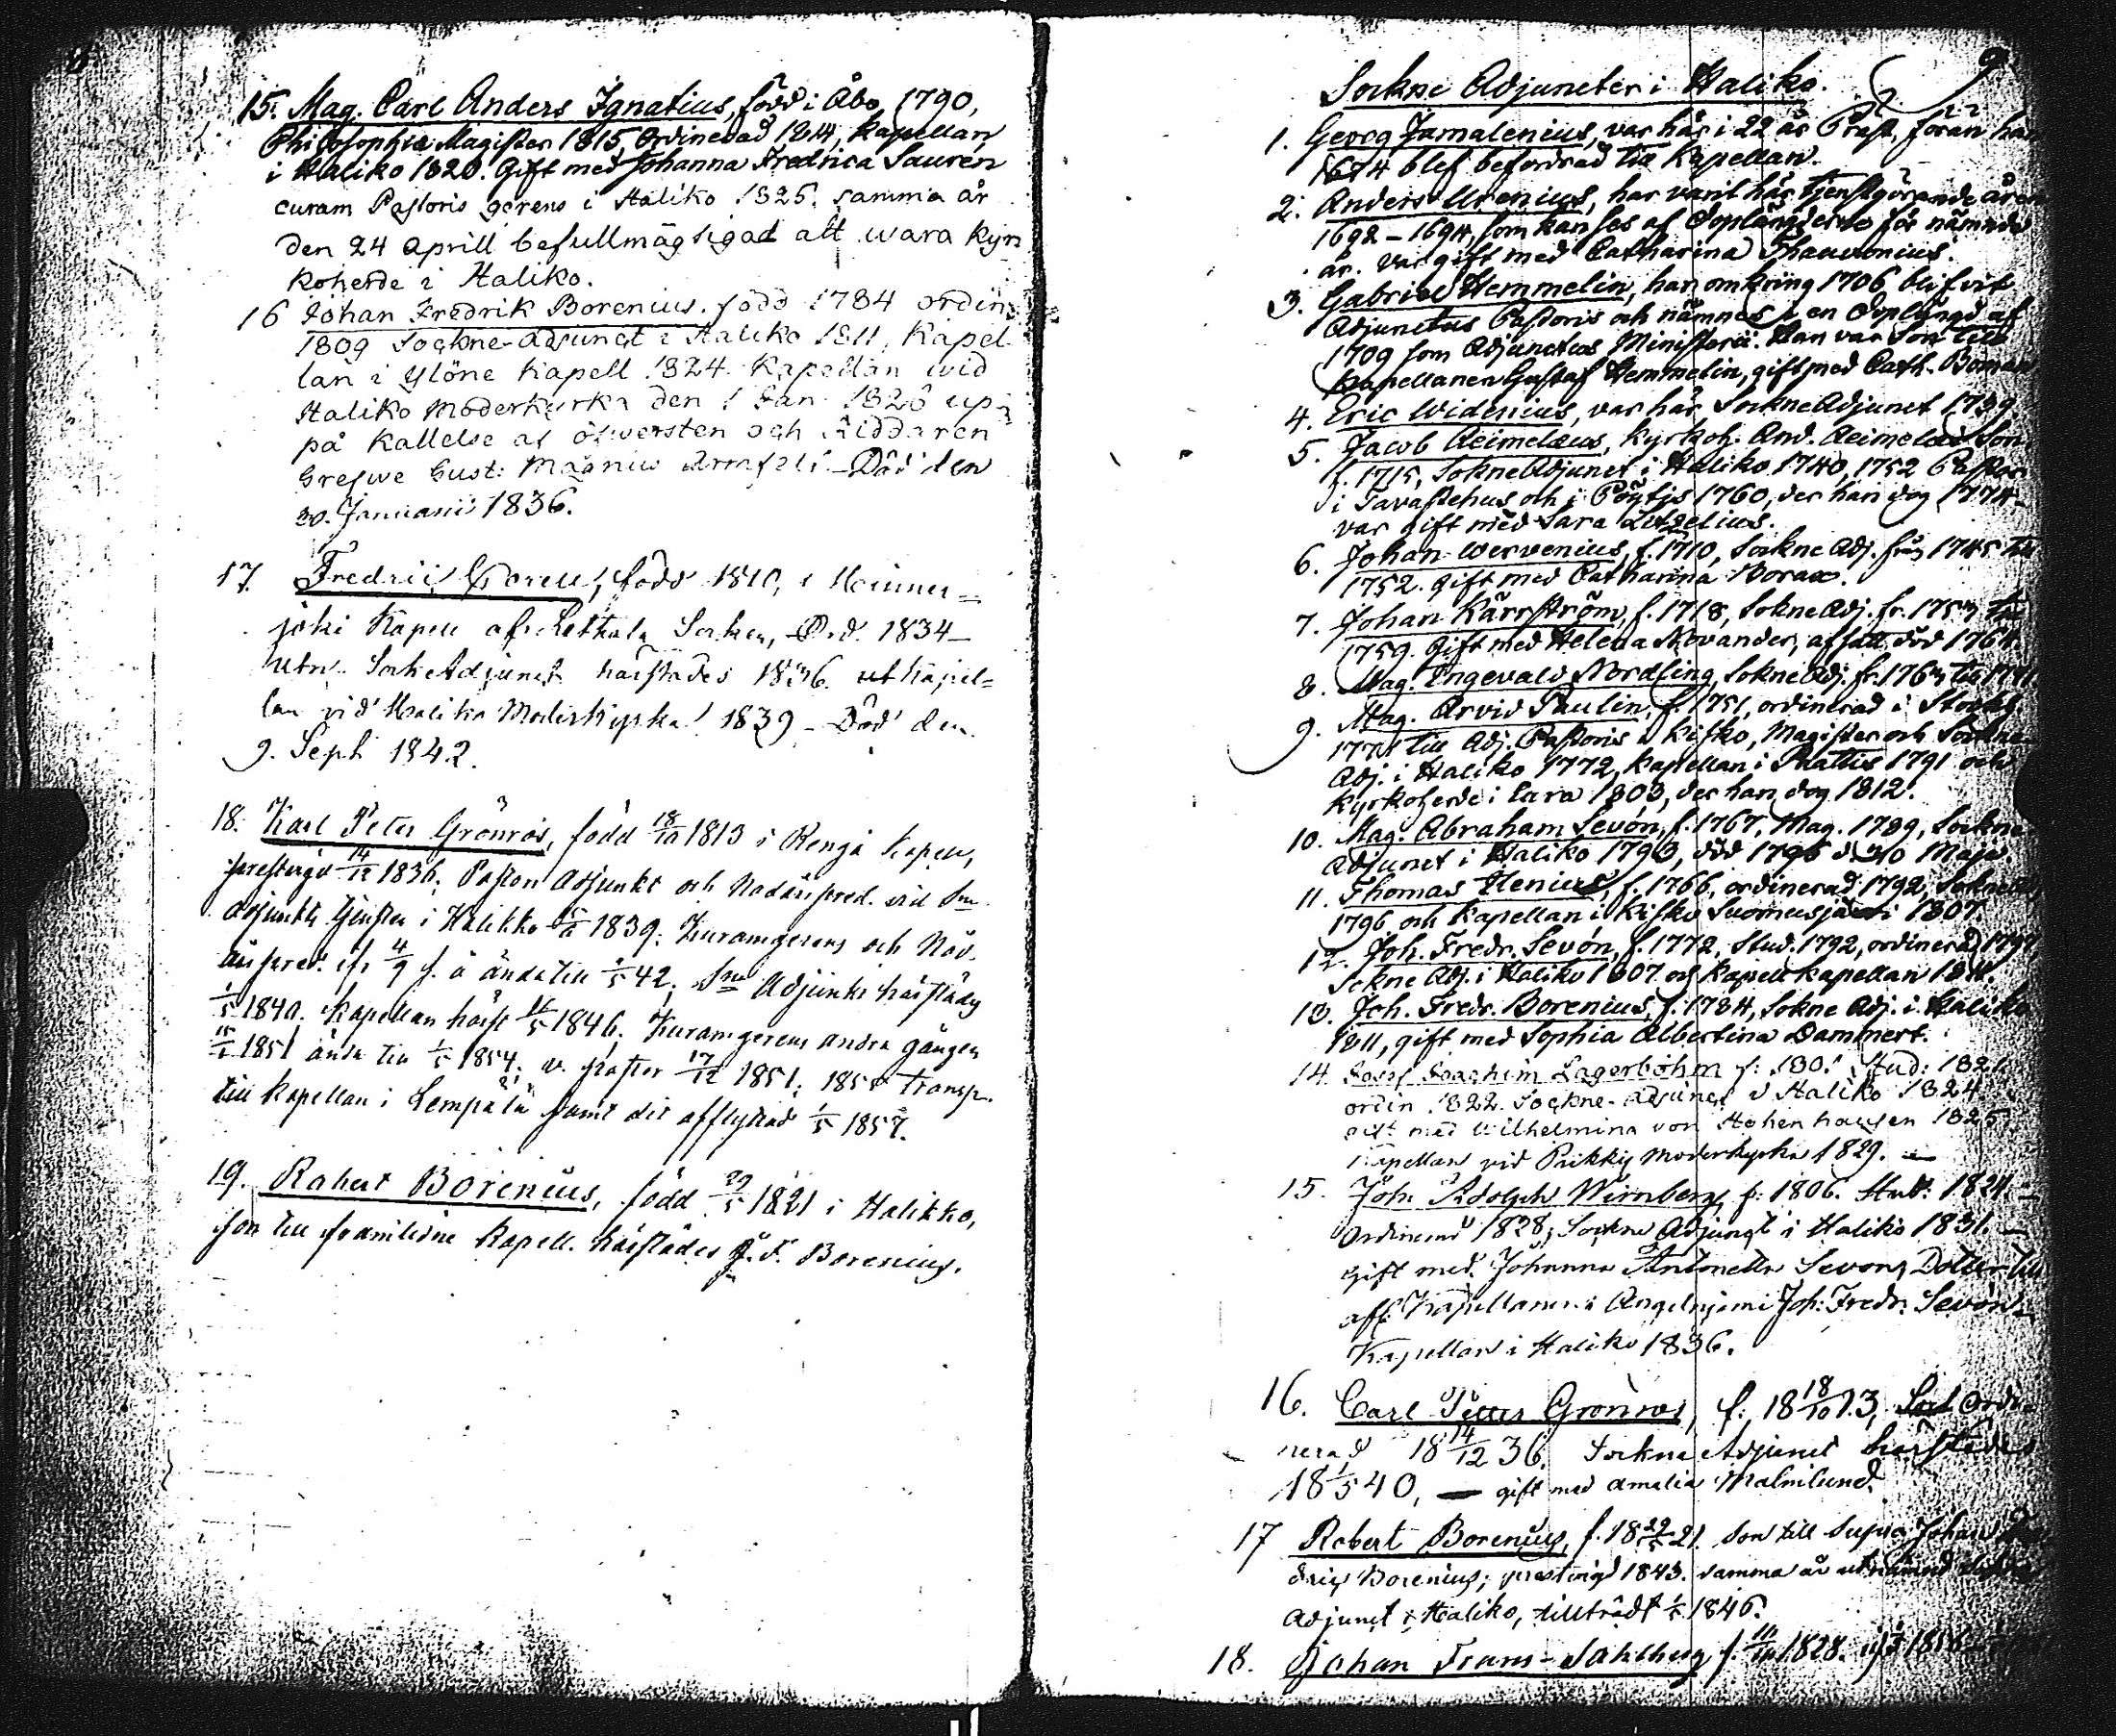 15. Mag. Carl Anders Ignatius, född i Åbo, 1790,
Philosophiæ Magister 1815, Ordinerad 1814, Kapellan
i Haliko 1820. Gift med Johanna Fredrica Sauren
curam Pastoris gerens i Haliko 1825. samma år
den 24 Aprill befullmägtigad att wara Kyr
koherde i Haliko.
16 Johan Fredrik Borenius. född 1784 ordin
1809 Sockne-Adjunct i Haliko 1811, Kapel
lan i Ylöne Kapell 1824. Kapellan wid
Haliko Moderkyrka den 1 Jan 1826 up
på Kallelse af öfwersten och Riddaren
Grefwe Gust: Magnus Armfelt - Död den
20. Januarii 1836.
17. född 1810, i
joki Kapell af Socken, Ord. 1834 -
utn. Sockne Adjunct härstädes 1836. utn kapel=
lan vid Haliko Moderkyrka 1839 - Död den
9. Sept 1842.
18. Karl Peter Grönros, född 18/10 1813 i Kapell,
prestvigd 14/12 1836, Pastors Adjunkt och Nådårspred. vid Sne
adjunkts tjensten i Halikko 1839; Kuramgerens och Nåd.
årspred. 4/9 f. å ända till 42; Sne Adjunkt härstädes
1/5 1840. Kapellan härst 1/5 1846. Kuramgerens andra gången
1851 ända till 1/5 1854. v. Pastor 17/12 1851; transp.
till Kapellan i Lempälä samt dit afflyttad 1/5
19. Robert Borenius, född 29/5 1821 i Halikko,
son till framlidne Kapell. härstädes J. F. Borenius.
9
Sockne Adjuncter i Haliko.
1. Georg Jamalenius, var här i 22 år Präst, förän han
1674 blef befordrad till Kapellan.
2. Anders Urenius, har varit här tjenstgörande åren
1692 - 1694, som kan ses af Doplängderne för nämnde
år. Var gift med Catharina Thauvonius.
3. Gabriel Hemmelin, har omkring 1706 blifvit
Adjunctus Pastoris och nämnes i en Doplängd af
1709 som Adjunctus Ministerii. Han var Son till
Kapellanen Gustaf Hemmelin, gift med Cath. Boman
4. Eric Widenius, var här Sockne Adjunct 1739
5. Jacob Reimelæus, Kyrkoh. And. Reimelæi Son
f. 1715, Sokne Adjunct i Haliko 1740, 1752 Pastor
i Tavastehus och i Pöytjs 1760, der han dog 1774
var gift med Sara Litzelius.
6. Johan Wervenius, f. 1710, Sockne Adj. från 1745 till
1752. gift med Catharina Borax.
7. Johan Kärrström, f. 1718, Sokne Adj. fr. till
1759. Gift med Helena Novander, afsatt död 1764.
8. Mag. Ingevald Nordling, Sokne Adj. fr. till
9. Mag. Arvid Paulin, f. 1751, ordinerad i Stockh.
1771 till Adj. Pastoris i Kisko, Magister och Sockne
Adj. i Haliko 1772, Kapellan i Prattis 1791 och
Kyrkoherde i Eura 1803, der han dog 1812.
10. Mag. Abraham Sevón, f. 1767, Mag. 1789, Sockne
Adjunct i Haliko 1793, död d 30 Maji.
11. Thomas Henius, f. 1766, ordinerad 1792, Sokne
1796 och Kapellan i Kisko Suomusjärvi 1807.
12. Joh. Fredr. Sevón, f. 1772, Stud. 1792, ordinerad
Sokne Adj. i Haliko 1807 och Kapell kapellan 1811.
13. Joh. Fredr. Borenius, f. 1784, Sokne Adj. i Haliko
1811, gift med Sophia Albertina Dammert.
14. Josef Joachim Lagerbohm f: 1801 Stud: 1821
ordin 1822. Sockne-adjunct i Haliko 1824
gift med Wilhelmina von Hohenhausen 1825
Kapellan vid Pikkis Moderkyrka 1829. -
15. Joh. Adolph Wirnberg f: 1806. Stud: 1824 -
Ordinerad 1828; Sockne Adjunct i Haliko 1831. -
gift med Johanna Antonetta Sevon, Dotter till
aff: Kapellanen i Angelniemi Joh: Fredr. Sevon.
Kapellan i Haliko 1836.
16. Carl Peter Grönros, f: 18 18/10 13, Ordi-
nerad 18 14/12 36. Sockne Adjunct härstedes
18 1/5 40, - gift med Amalia Malmlund.
17 Robert Borenius, f. 18 29/5 21. Son till Supra Johan
dric Borenius; prestvigd 1843. samma år utnämnd
Adjunct i Haliko, tillträdt 1/5 1846.
18. Johan Frans Sahlberg f. 1828.